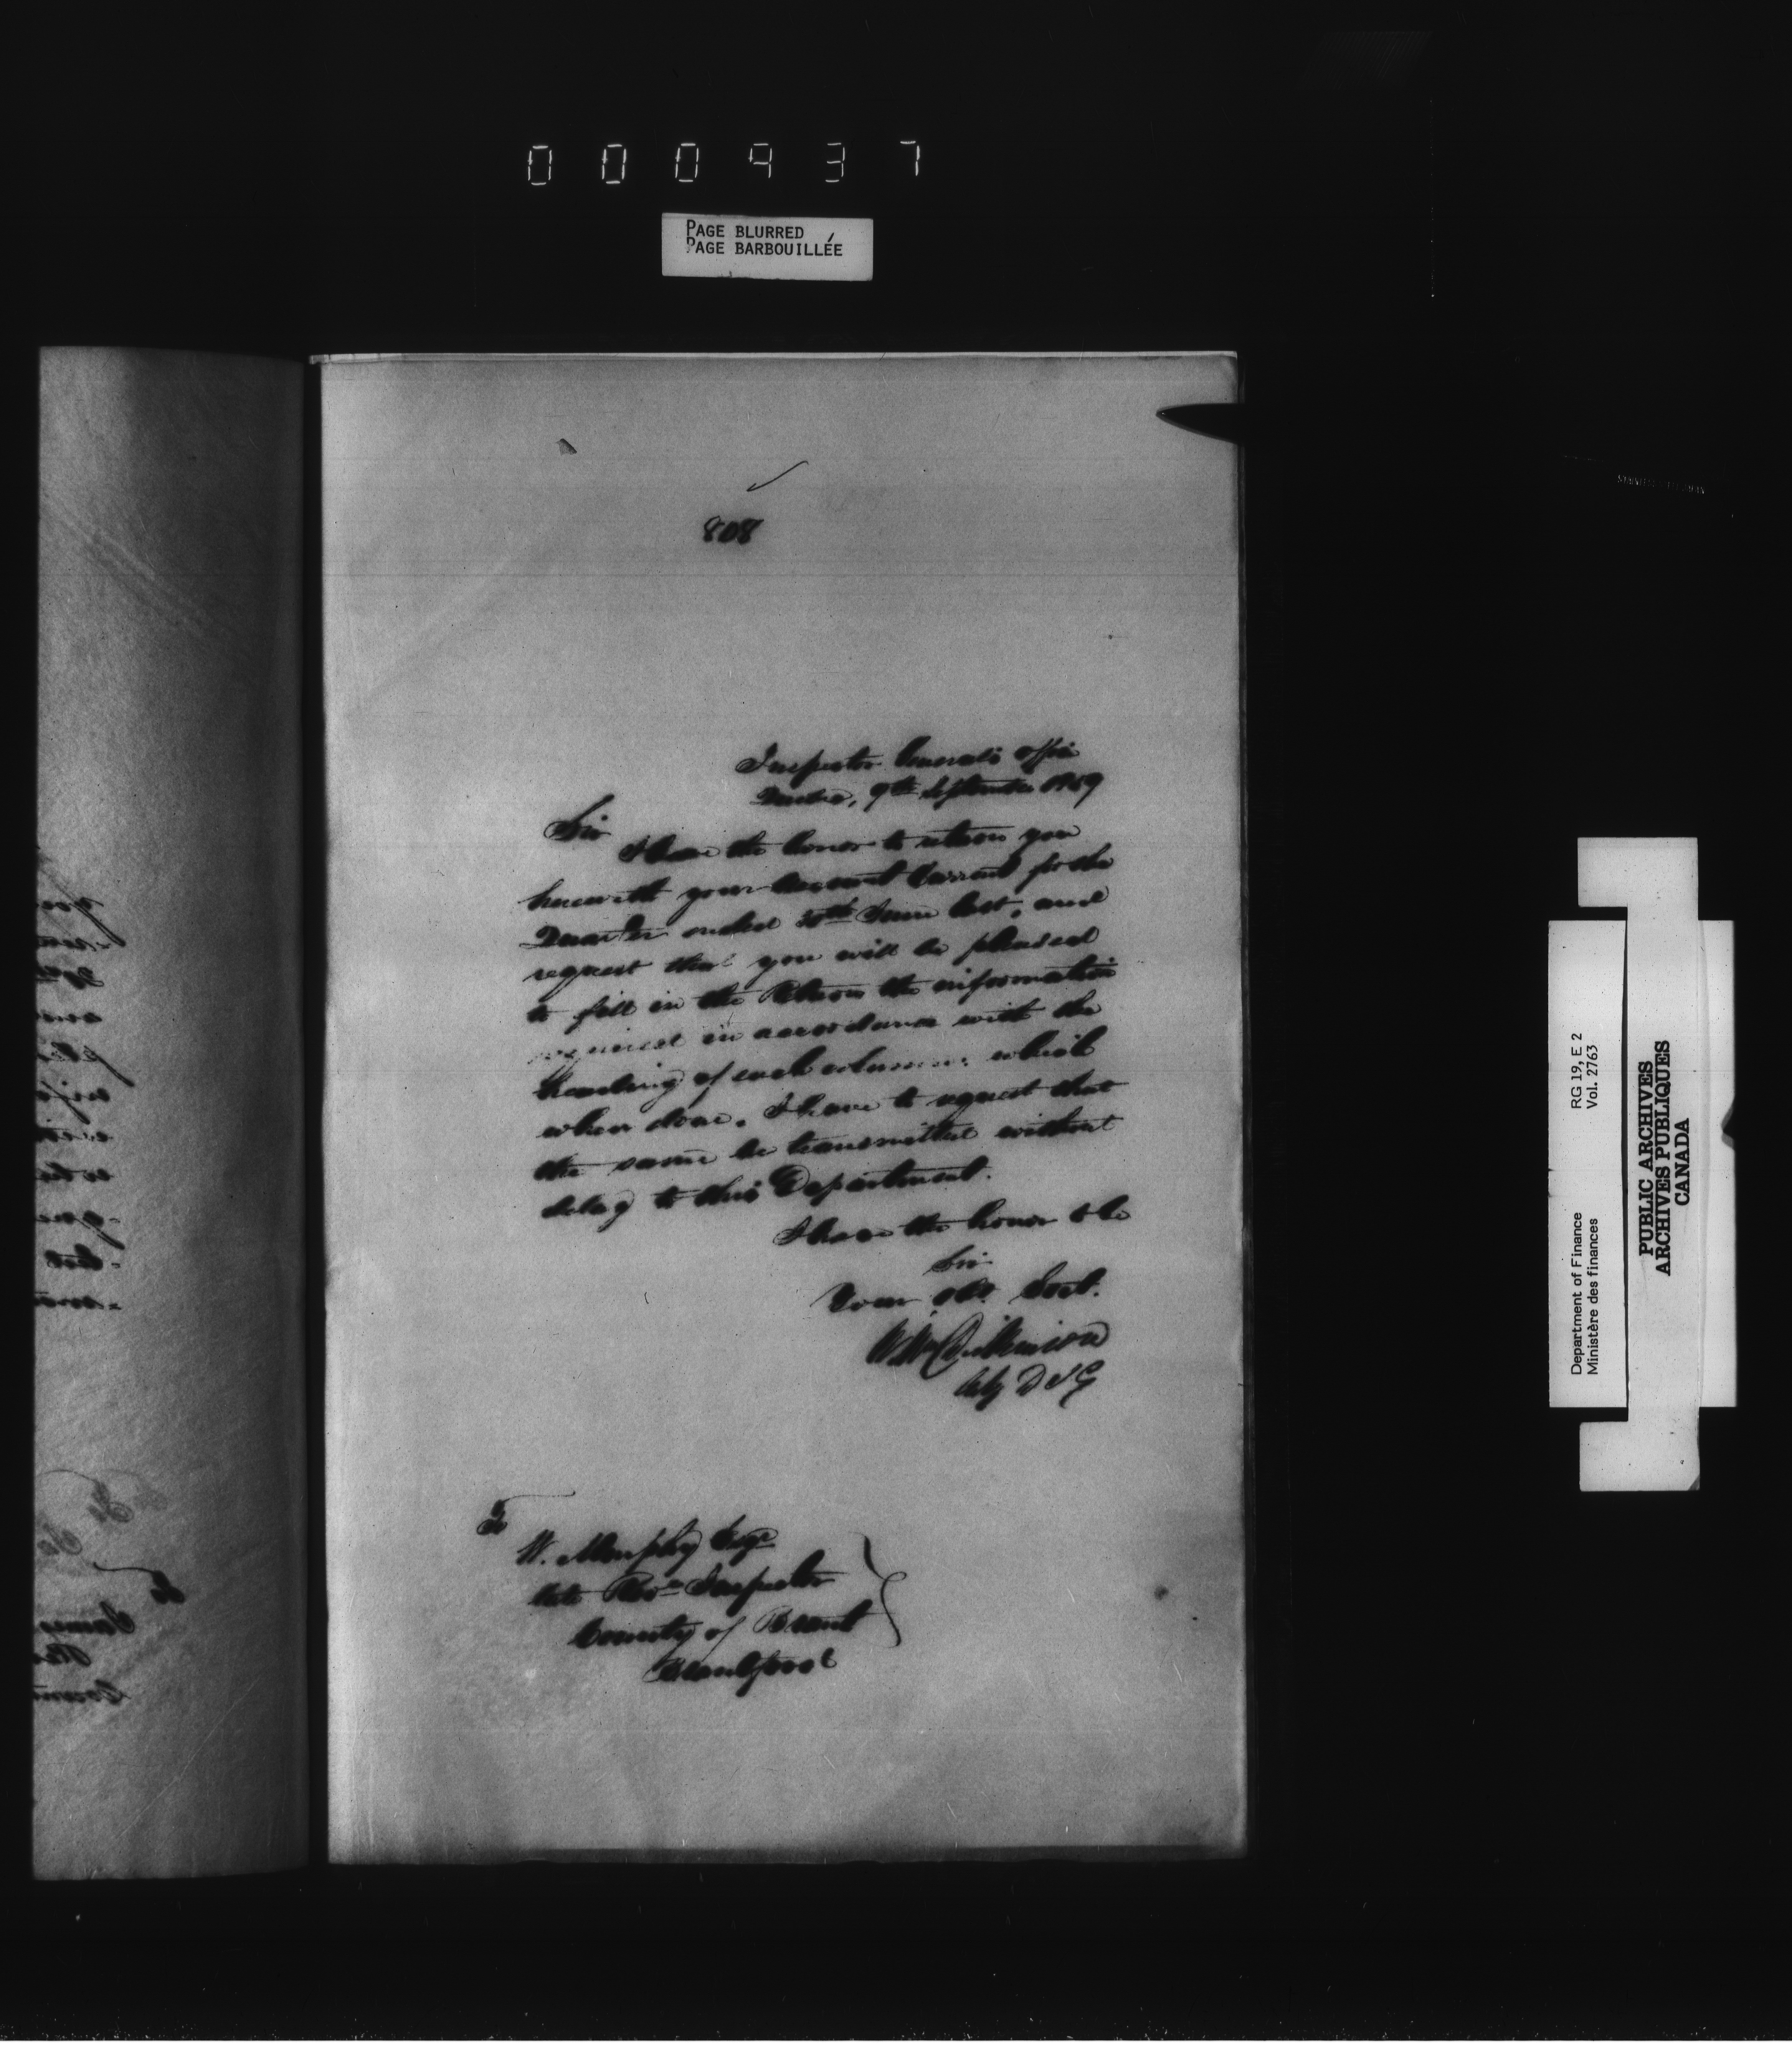 000937
PAGE BLURRED
PAGE BARBOUILLÉE
808
Inspector General's Office
Quebec, 9th September 1859
Sir
I have the honor to return you
herewith your Account Current for the
Quarter ended 30th June last, and
request that you will be pleased
to fill in the Return the information
required in accordance with the
heading of each column: which
when done, I have to request that
the same be transmitted without
delay to this Department.
I have the honor to be
Sir
Your obt. Servt.
Wm Dickinson
Actg D I G
To
W. Murphy Esqr
late Revn Inspector
County of Brant
Brantford
RG 19, E 2
Vol. 2763
Department of Finance
Ministère des finances
PUBLIC ARCHIVES
ARCHIVES PUBLIQUES
CANADA